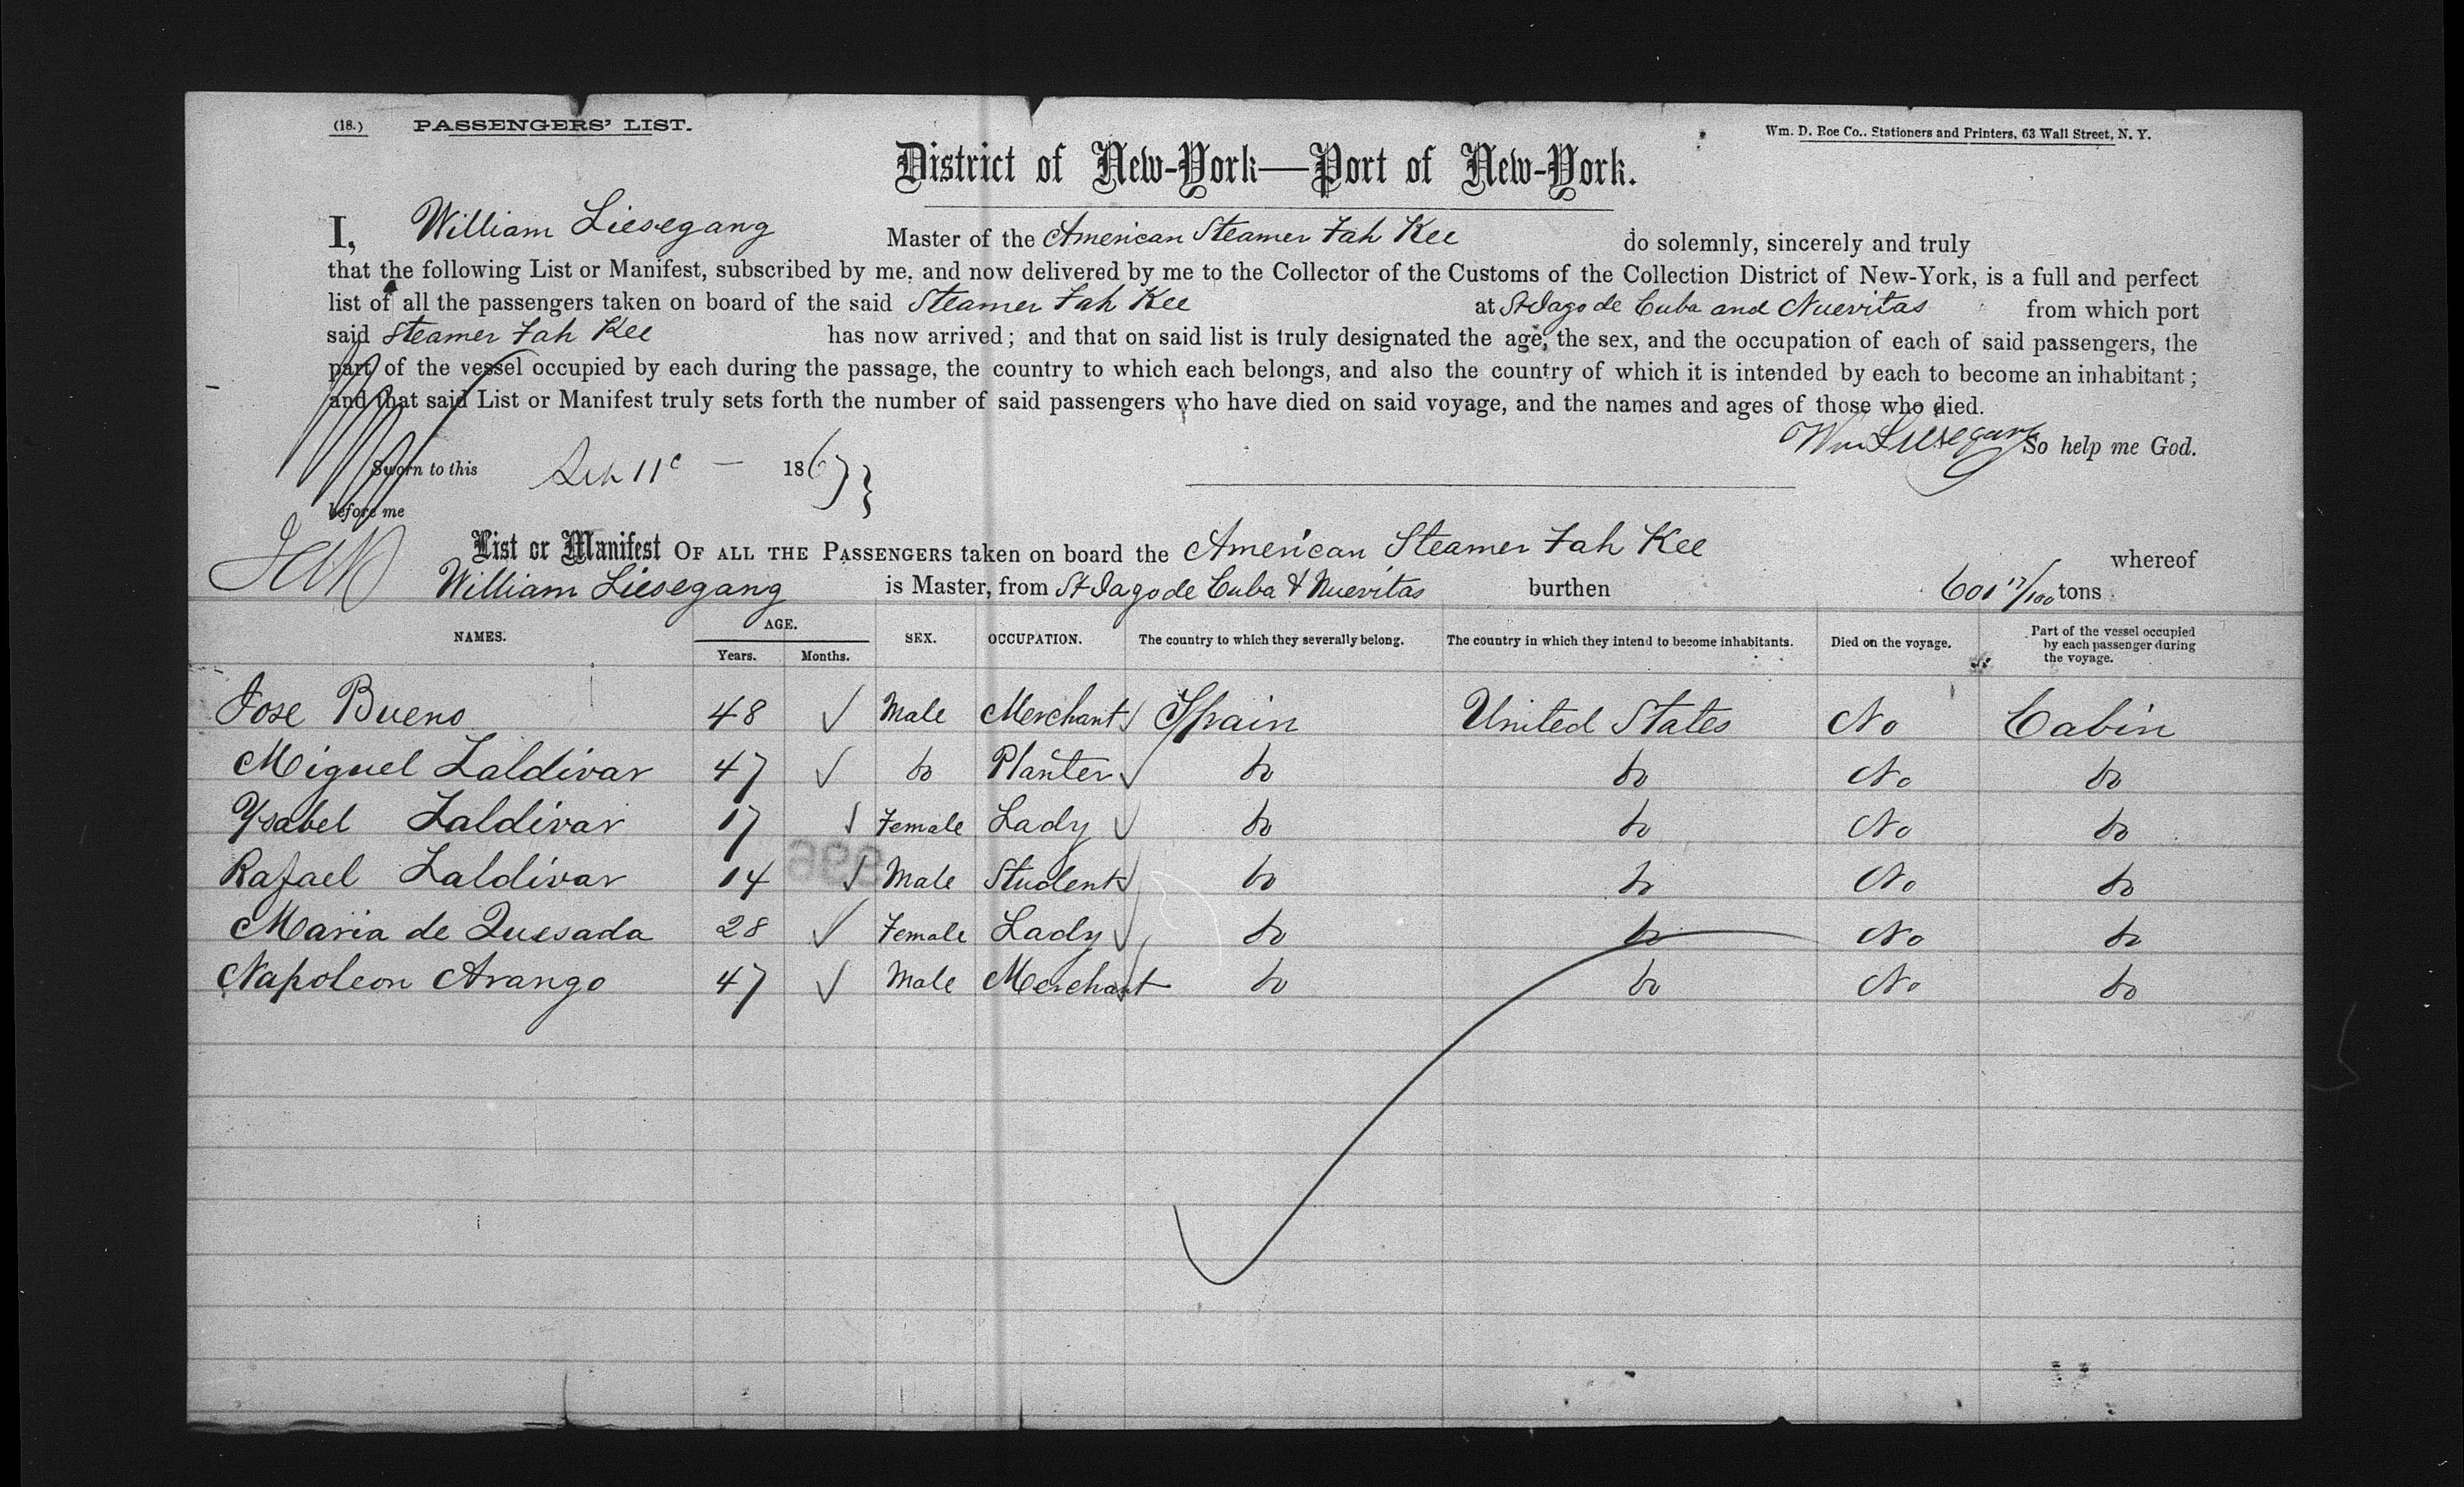 (18.) PASSENGERS' LIST. Wm. D. Roe Co., Stationers and Printers, 63 Wall Street, N. Y.
District of New-York—Port of New-York.
I, William Liesegang Master of the American Steamer Fah Kee do solemnly, sincerely and truly
that the following List or Manifest, subscribed by me, and now delivered by me to the Collector of the Customs of the Collection District of New-York, is a full and perfect
list of all the passengers taken on board of the said Steamer Fah Kee at St Jago de Cuba and Nuevitas from which port
said Steamer Fah Kee has now arrived; and that on said list is truly designated the age, the sex, and the occupation of each of said passengers, the
part of the vessel occupied by each during the passage, the country to which each belongs, and also the country of which it is intended by each to become an inhabitant;
and that said List or Manifest truly sets forth the number of said passengers who have died on said voyage, and the names and ages of those who died.
Wm Liesegang So help me God.
Sworn to this 11 186
before me
List or Manifest OF ALL THE PASSENGERS taken on board the American Steamer Fah Kee whereof
William Liesegang is Master, from St Jago de Cuba & Nuevitas burthen 601 17/100 tons
NAMES. AGE. Years. Months. SEX. OCCUPATION. The country to which they severally belong. The country in which they intend to become inhabitants. Died on the voyage. Part of the vessel occupied by each passenger during the voyage.
Jose Bueno 48 ✓ Male Merchant ✓ Spain United States No Cabin
Miguel Zaldivar 47 ✓ do Planter ✓ do do No do
Ysabel Zaldivar 17 ✓ Female Lady ✓ do do No do
Rafael Zaldivar 14 ✓ Male Student ✓ do do No do
Maria de Quesada 28 ✓ Female Lady ✓ do do No do
Napoleon Arango 47 ✓ Male Merchant do do No do